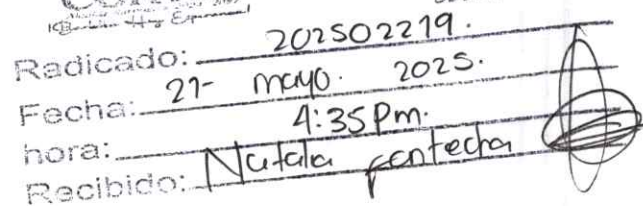 Radicado: 202502219.
Fecha: 21- mayo. 2025.
hora: 4:35 Pm.
Recibido: Natalia fontecha